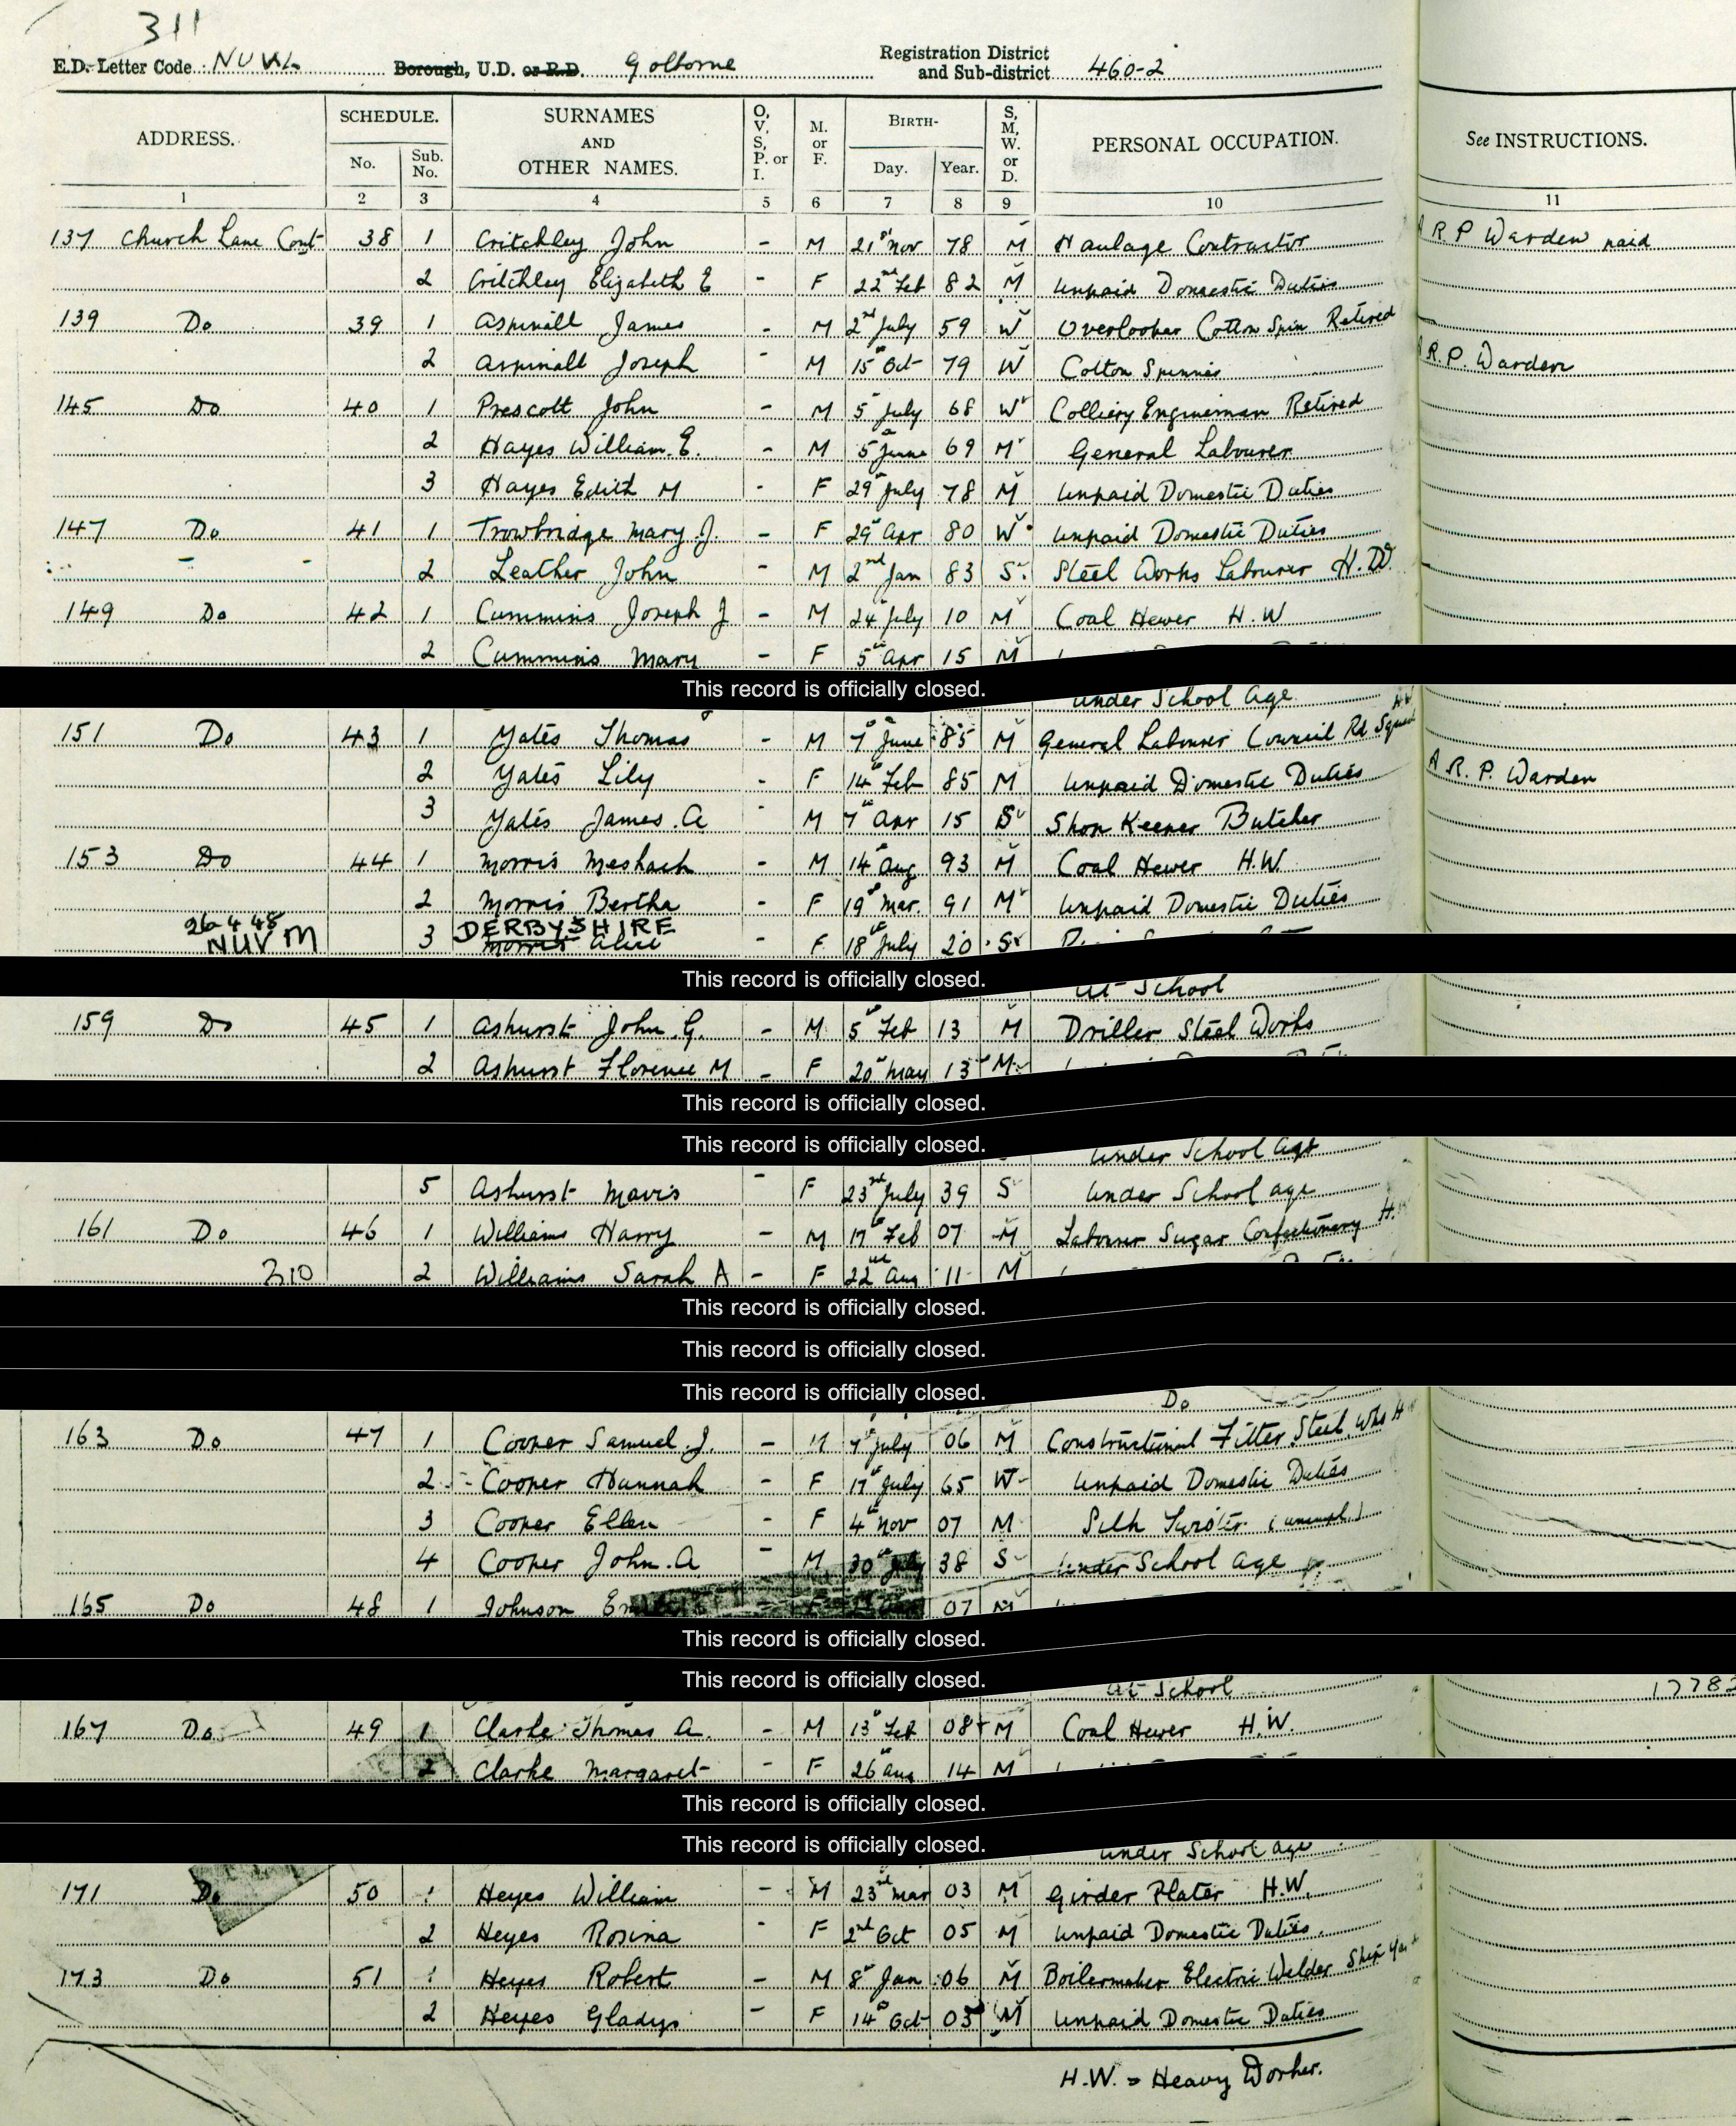 311
E.D. Letter Code NUWL Borough, U.D. or R.D. Golborne Registration District and Sub-district 460-2
ADDRESS. SCHEDULE. No. Sub. No. SURNAMES AND OTHER NAMES. O, V, S, P. or I. M. or F. BIRTH- Day. Year. S, M, W. or D. PERSONAL OCCUPATION. See INSTRUCTIONS.
1 2 3 4 5 6 7 8 9 10 11
137 Church Lane Cont 38 1 Critchley John - M 21st Nov 78 M Haulage Contractor A R P Warden paid
2 Critchley Elizabeth E - F 22nd Feb 82 M Unpaid Domestic Duties
139 Do 39 1 Aspinall James - M 2nd July 59 W Overlooker Cotton Spin Retired
2 Aspinall Joseph - M 15th Oct 79 W Cotton Spinner A R.P. Warden
145 Do 40 1 Prescott John - M 5th July 68 W Colliery Engineman Retired
2 Hayes William. E. - M 5th June 69 M General Labourer
3 Hayes Edith M - F 29th July 78 M Unpaid Domestic Duties
147 Do 41 1 Trowbridge Mary. J. - F 29th Apr 80 W Unpaid Domestic Duties
2 Leather John - M 2nd Jan 83 S Steel Works Labourer H.W.
149 Do 42 1 Cummins Joseph J - M 24th July 10 M Coal Hewer H.W
2 Cummins Mary - F 5th Apr 15 M
This record is officially closed.
Under School Age
151 Do 43 1 Yates Thomas - M 7th June 85 M General Labourer Council Rd HW
2 Yates Lily - F 14th Feb 85 M Unpaid Domestic Duties A R. P. Warden
3 Yates James. A - M 7th Apr 15 S Shop Keeper Butcher
153 Do 44 1 Morris Meshach - M 14th Aug 93 M Coal Hewer H.W.
2 Morris Bertha - F 19th Mar. 91 M Unpaid Domestic Duties
26 4 48 NUV M 3 DERBYSHIRE Morris Alice - F 18th July 20 S
This record is officially closed.
At School
159 Do 45 1 Ashurst John. G. - M 5th Feb 13 M Driller Steel Works
2 Ashurst Florence M - F 20th May 13 M
This record is officially closed.
This record is officially closed.
Under School Age
5 Ashurst Mavis - F 23rd July 39 S Under School age
161 Do 46 1 Williams Harry - M 17th Feb 07 M Labourer Sugar Confectionery H.
310 2 Williams Sarah A - F 22nd Aug 11 M
This record is officially closed.
This record is officially closed.
This record is officially closed.
Do
163 Do 47 1 Cooper Samuel. J. - M 7th July 06 M Constructional Fitter Steel Wks H
2 Cooper Hannah - F 17th July 65 W Unpaid Domestic Duties
3 Cooper Ellen - F 4th Nov 07 M Silk Twister (unempl.)
4 Cooper John. A - M 30th July 38 S Under School Age
165 Do 48 1 Johnson 07 M
This record is officially closed.
This record is officially closed.
At School 17782
167 Do 49 1 Clarke Thomas A. - M 13th Feb 08 M Coal Hewer H.W.
2 Clarke Margaret - F 26th Aug 14 M
This record is officially closed.
This record is officially closed.
Under School Age
171 Do 50 1 Heyes William - M 23rd Mar 03 M Girder Plater H.W.
2 Heyes Rosina - F 2nd Oct 05 M Unpaid Domestic Duties.
173 Do 51 1 Heyes Robert - M 8th Jan 06 M Boilermaker Electric Welder Ship Yard
2 Heyes Gladys - F 14th Oct 05 M Unpaid Domestic Duties
H.W. = Heavy Worker.